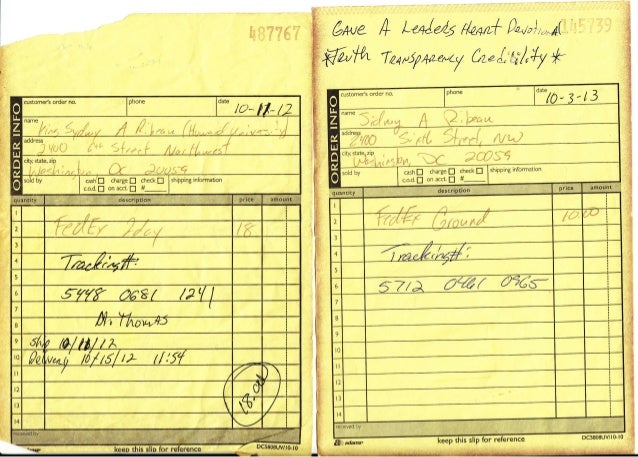 487767
ORDER INFO
customer's order no. phone date
10-11-12
name
King Sydney A Ribeau (Howard University)
address
2400 6th Street Northwest
city, state, zip
Washington, DC 20059
sold by cash charge check shipping information
c.o.d. on acct. #
quantity description price amount
1
2 FedEx 2day 18.
3
4 Tracking#:
5
6 5448 0681 1241
7
8 M. Thomas
9 Ship 10/11/12
10 Delivery 10/15/12 11:54
11
12
13 18.00
14
received by
keep this slip for reference
DC5808UV/10-10
145739
GAVE A Leaders Heart Devotional
*Truth Transparency Credibility*
ORDER INFO
customer's order no. phone date
10-3-13
name
Sidney A Ribeau
address
2400 Sixth Street, NW
city, state, zip
Washington, DC 20059
sold by cash charge check shipping information
c.o.d. on acct. #
quantity description price amount
1
2 FedEx Ground 10.00
3
4 Tracking#:
5
6 5712 0461 0965
7
8
9
10
11
12
13
14
received by
adams
keep this slip for reference
DC5808UV/10-10